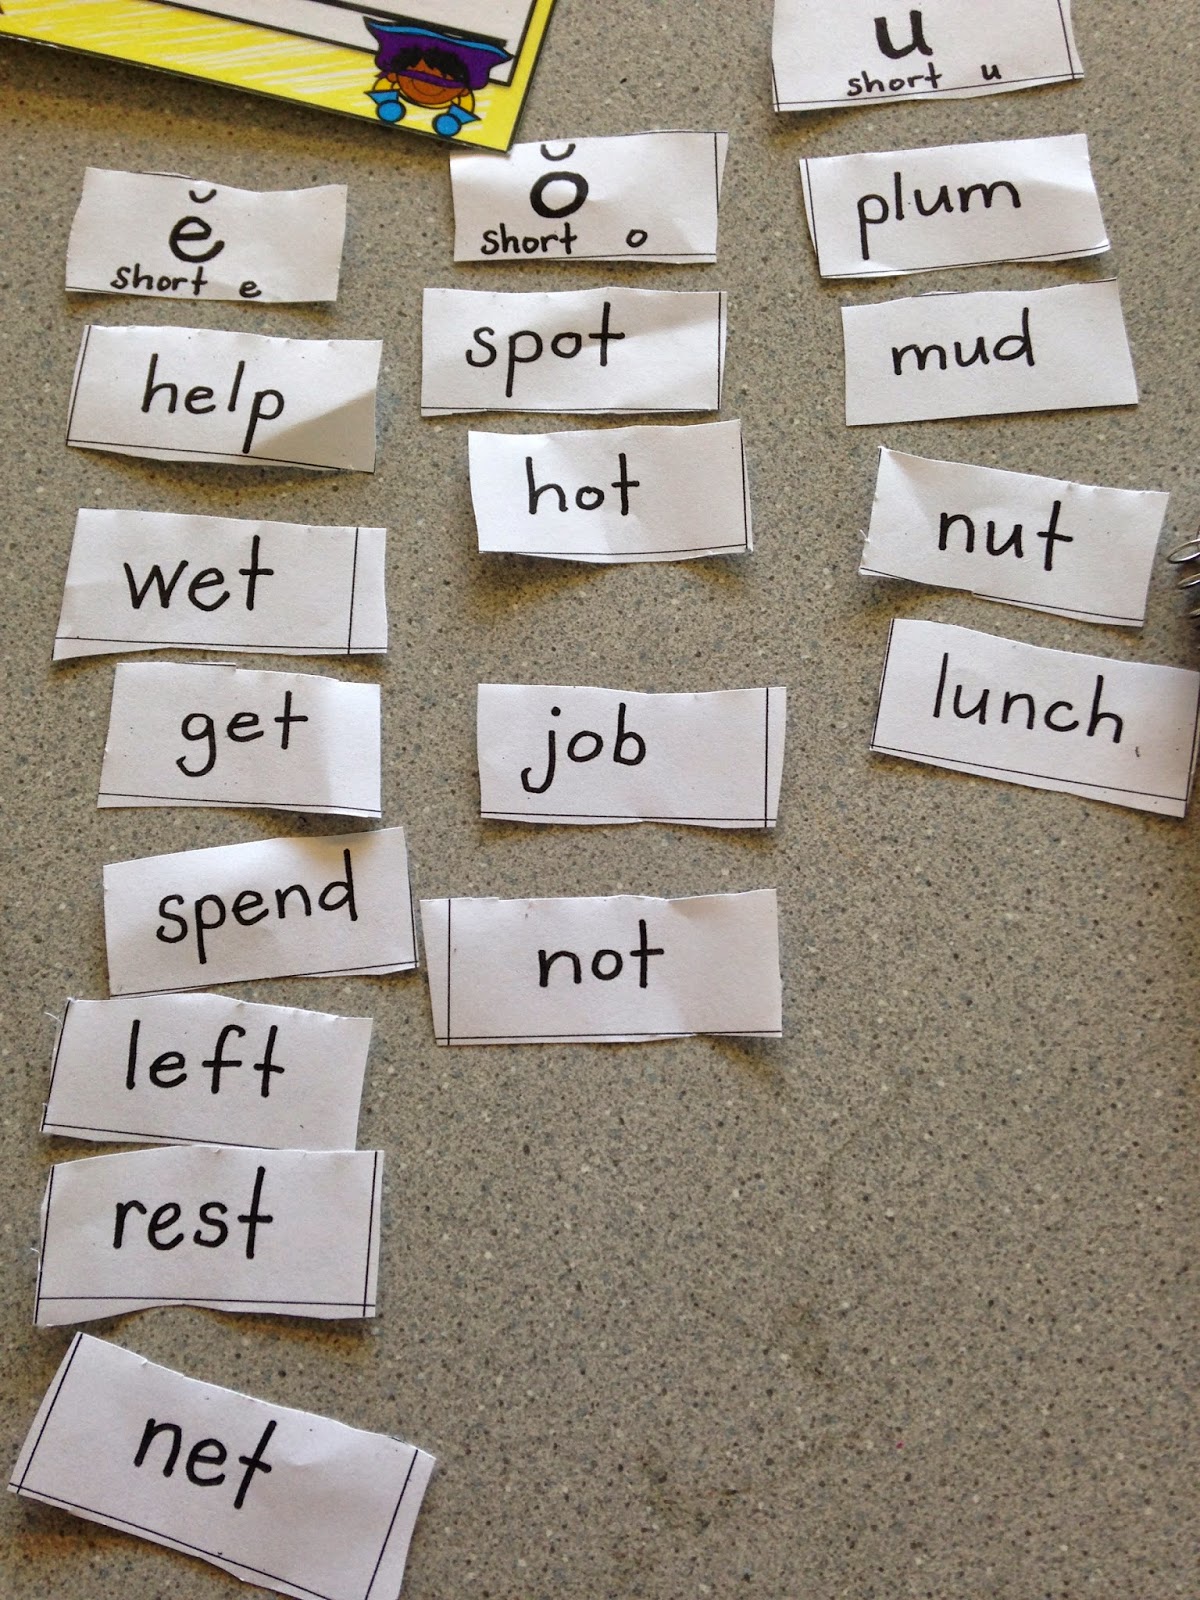 ĕ
short e
help
wet
get
spend
left
rest
net
ŏ
short o
spot
hot
job
not
u
short u
plum
mud
nut
lunch